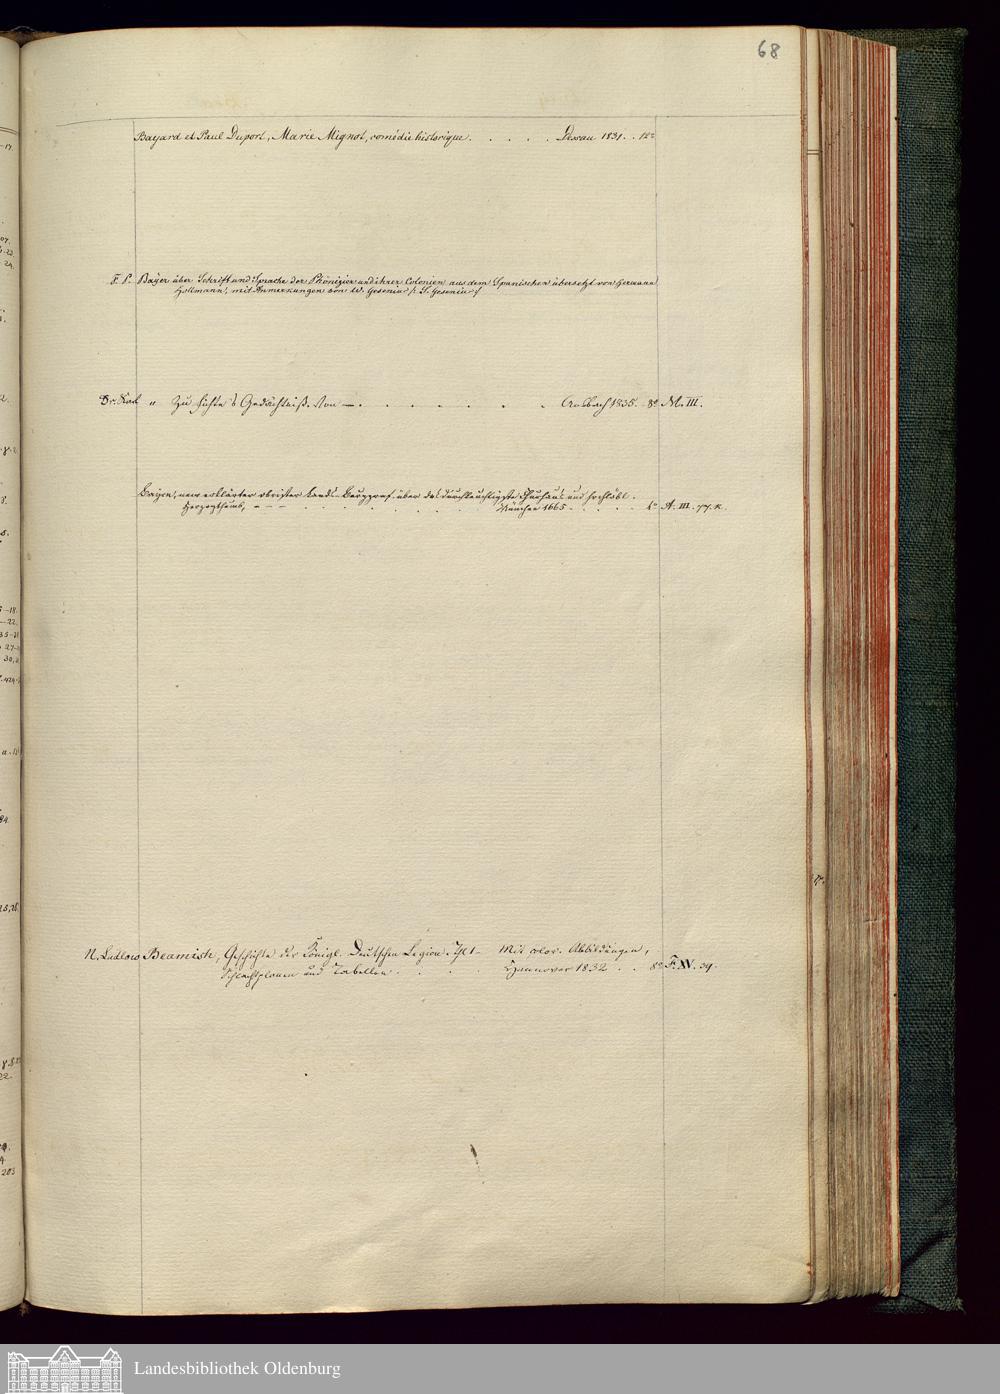 68
Bayard et Paul Duport, Marie Mignot, comédie historique. . . . . Dessau 1831. . 12º
F. P. Bayer über Schrift und Sprache der Phönizier und ihrer Colonien aus dem Spanischen übersetzt von Hermann
Hollmann, mit Anmerkungen von W. Gesenius /: S. Gesenius :/
Dr. Karl " Zu Fichte's Gedächtniß. Von — . . . . . . . Ansbach 1835. 8º M. III.
Bayern, new erklärter obrister Land-Burggraf über das durchleuchtigste Churhaus und hochlöbl.
Herzogthumb, - - - . . . . . München 1665 . . . . 4º A. III. 77. k.
N. Ludlow Beamish, Geschichte der Königl. Deutschen Legion. Thl 1 - Mit color. Abbildungen,
Schlachtplanen und Tabellen . . . . Hannover 1832 . . 8º F. XV. 39.
Landesbibliothek Oldenburg